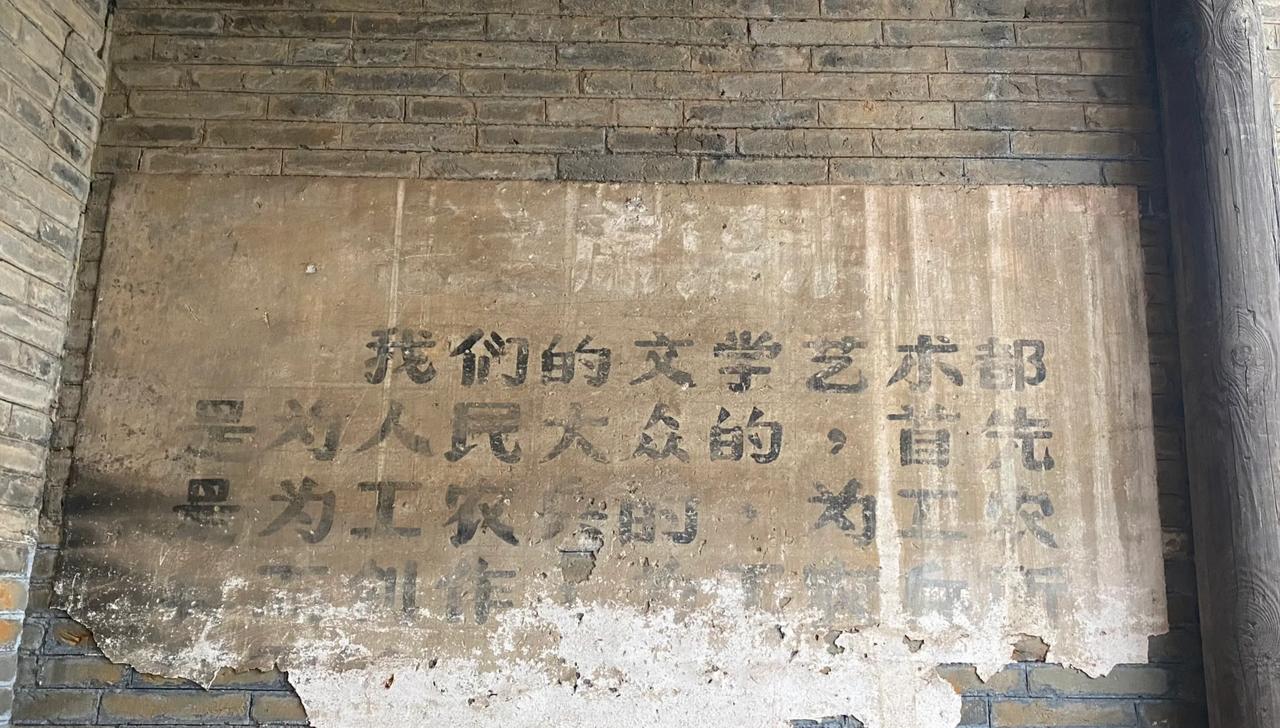 我们的文学艺术都
是为人民大众的，首先
是为工农兵的，为工农
而创作，为工农兵所